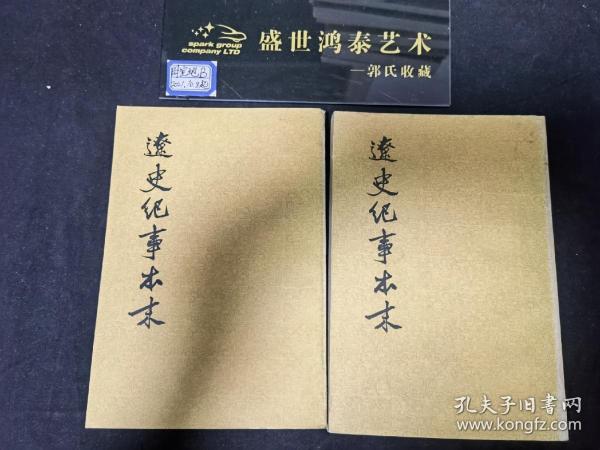 spark group
company LTD
盛世鸿泰艺术
—郭氏收藏
遼史纪事本末
遼史纪事本末
孔夫子旧书网
www.kongfz.com